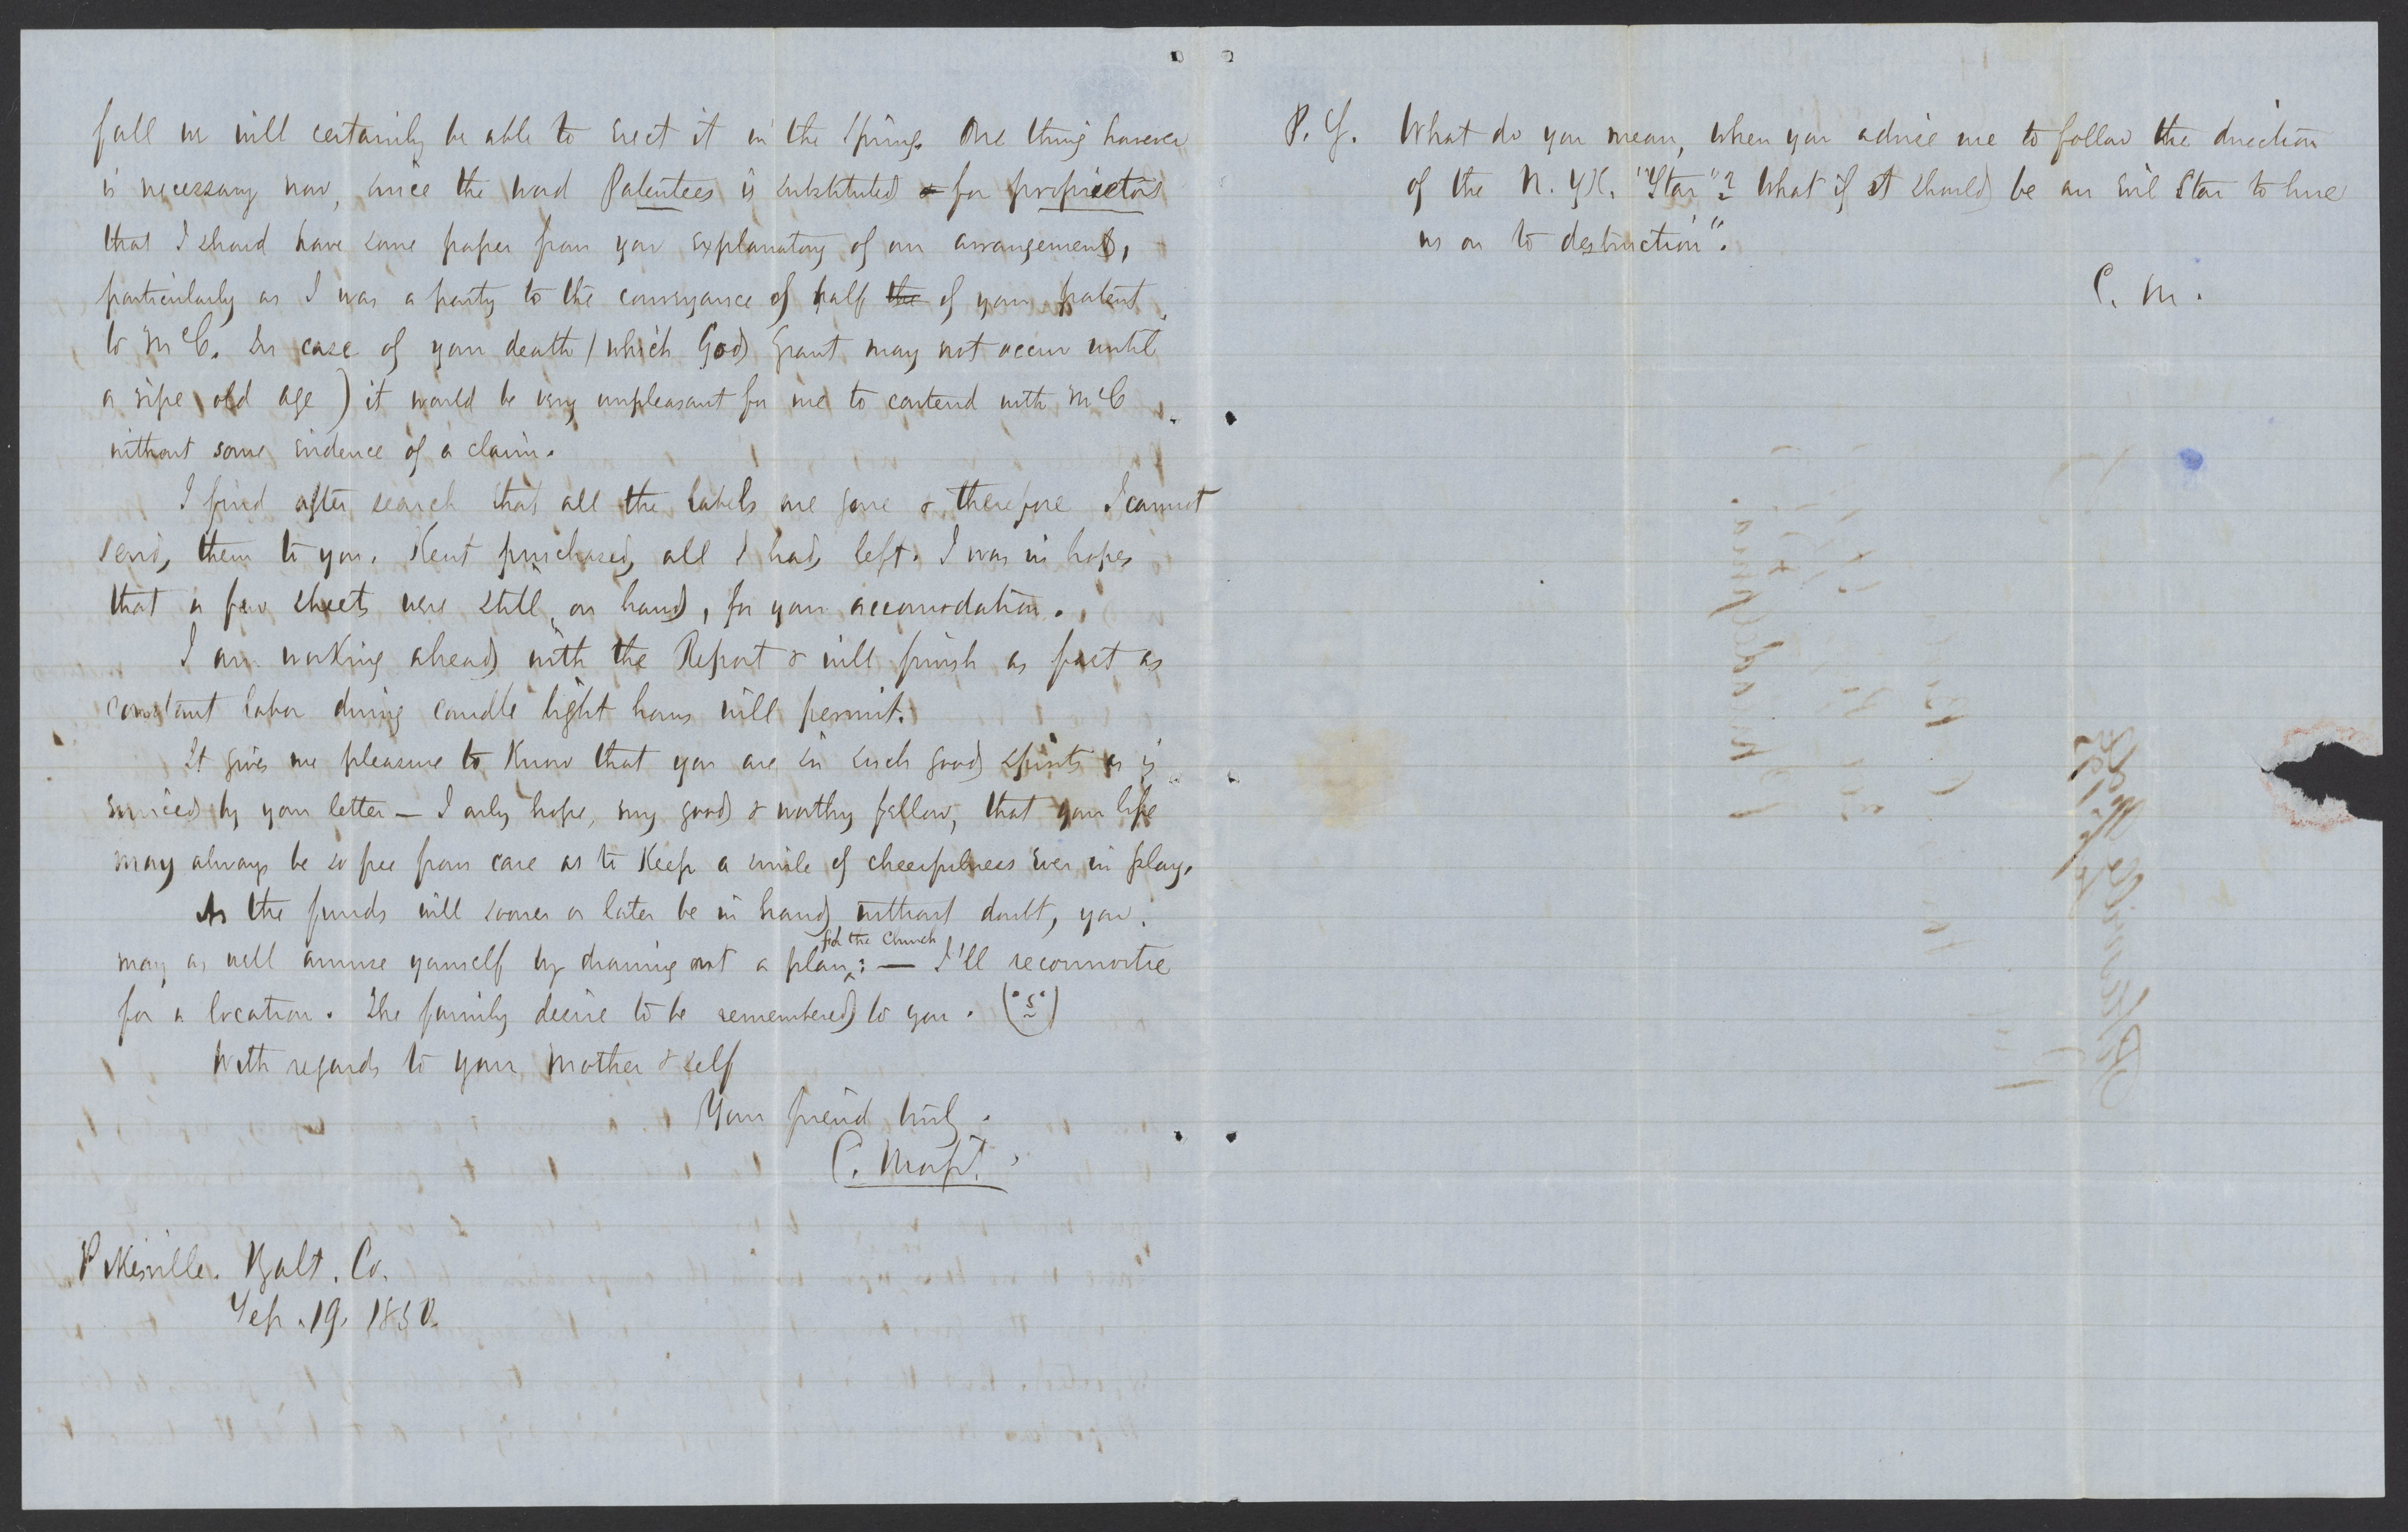 fall we will certainly be able to erect it in the Spring. One thing however
is necessary now, since the word Patentees is substituted for proprietors
that I should have some paper from you explanatory of our arrangement,
particularly as I was a party to the conveyance of half the of your patent
to McC. In case of your death (which God grant may not occur until
a ripe old age) it would be very unpleasant for me to contend with McC
without some evidence of a claim.
I find after search that all the labels are gone & therefore I cannot
send them to you. Kent purchased all I had left. I was in hopes
that a few sheets were still on hand, for your accomodation.
I am working ahead with the Report & will finish as fast as
constant labor during candle light hours will permit.
It gives me pleasure to Know that you are in such good spirits as is
evinced by your letter — I only hope, my good & worthy fellow, that your life
may always be so free from care as to Keep a smile of cheerfulness ever in play.
As the funds will sooner or later be in hand without doubt, you
may as well amuse yourself by drawing out a plan for the Church: — I'll reconnoitre
for a location. The family desire to be remembered to you.
With regards to your Mother & self
Your friend truly.
C. Morfit.
Pikesville. Balt. Co.
Sep. 19. 1850.
P.S. What do you mean, when you advise me to follow the direction
of the N. YK. "Star"? What if it should be an evil Star to lure
us on to destruction".
C. M.